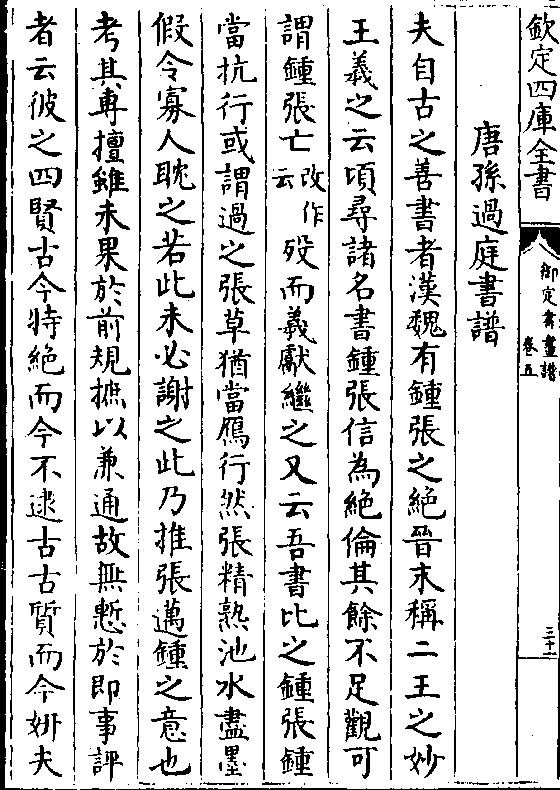 欽定四庫全書
御定書畫譜
卷五
三十一
唐孫過庭書譜
夫自古之善書者漢魏有鍾張之絶晉末稱二王之妙
王羲之云頃尋諸名書鍾張信為絶倫其餘不足觀可
謂鍾張亡改作云歿而羲獻繼之又云吾書比之鍾張鍾
當抗行或謂過之張草猶當鴈行然張精熟池水盡墨
假令寡人耽之若此未必謝之此乃推張邁鍾之意也
考其專擅雖未果於前規摭以兼通故無慙於即事評
者云彼之四賢古今特絶而今不逮古古質而今妍夫